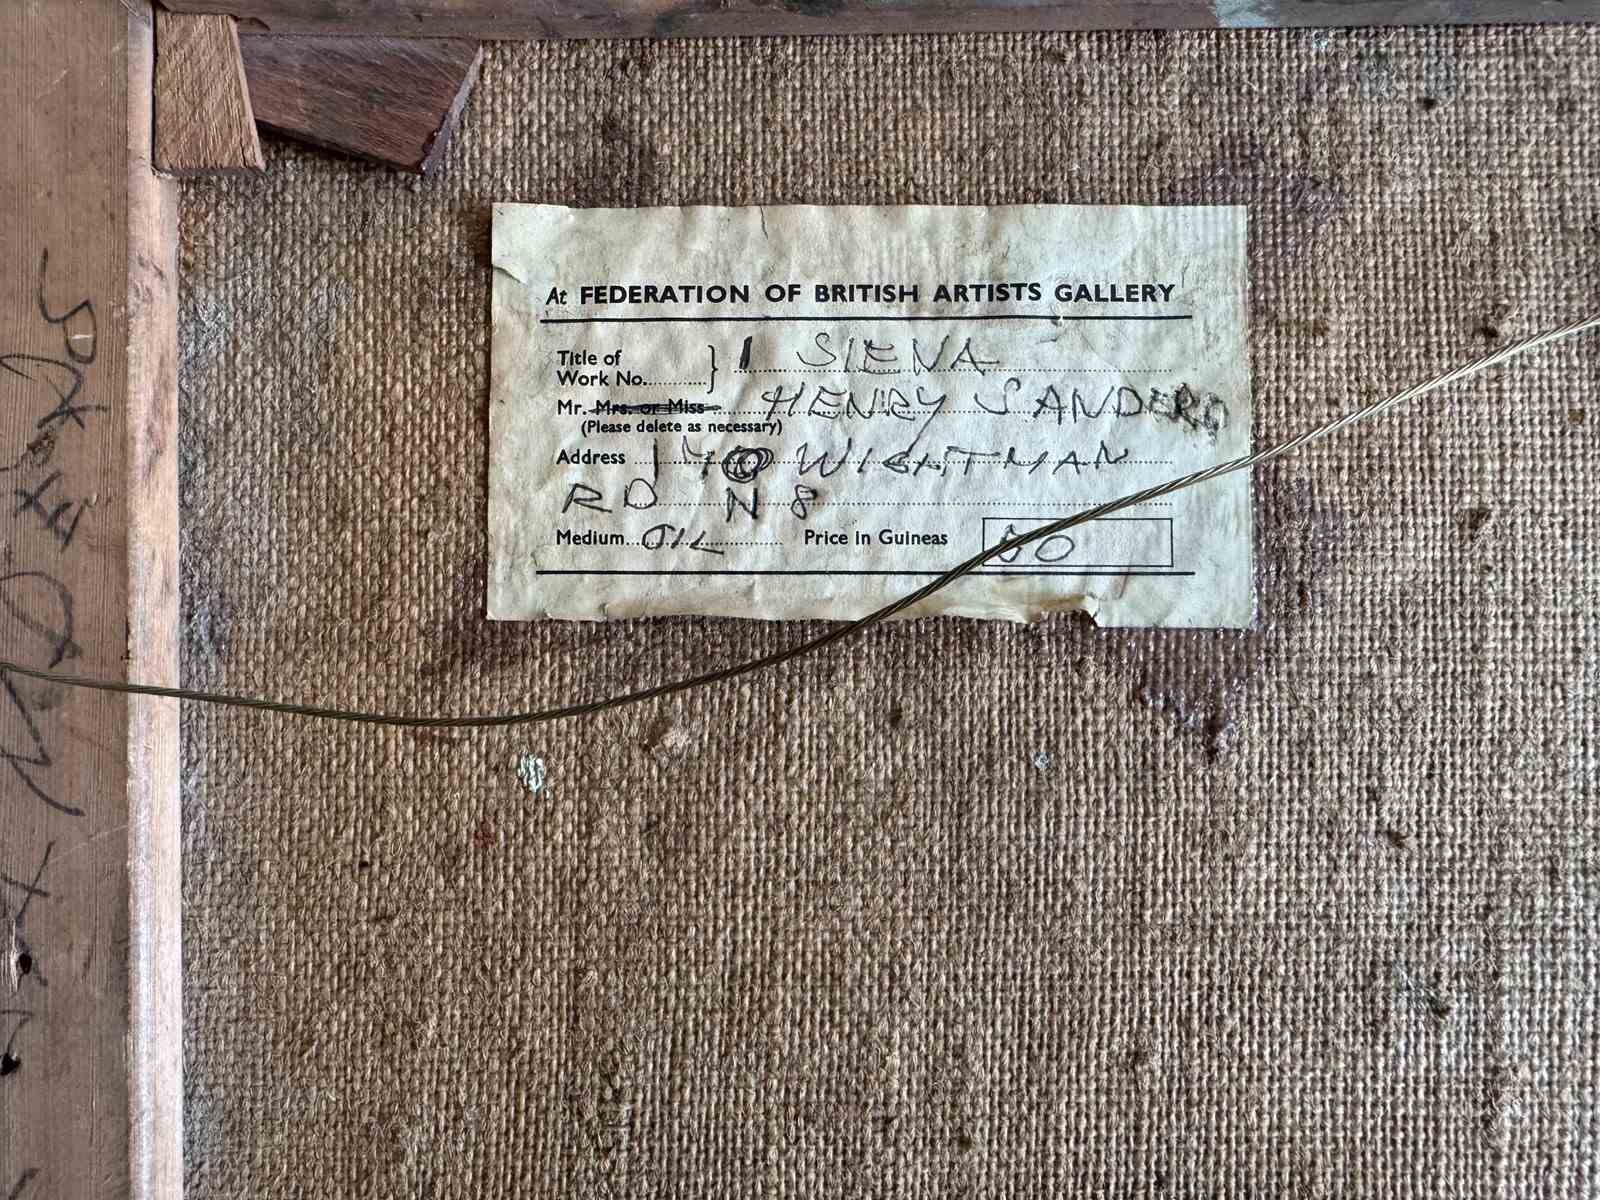 At FEDERATION OF BRITISH ARTISTS GALLERY
Title of } 1 SIENA
Work No.
Mr. Mrs. or Miss HENRY SANDERS
(Please delete as necessary)
Address 140 WIGHTMAN
RD N8
Medium OIL Price in Guineas